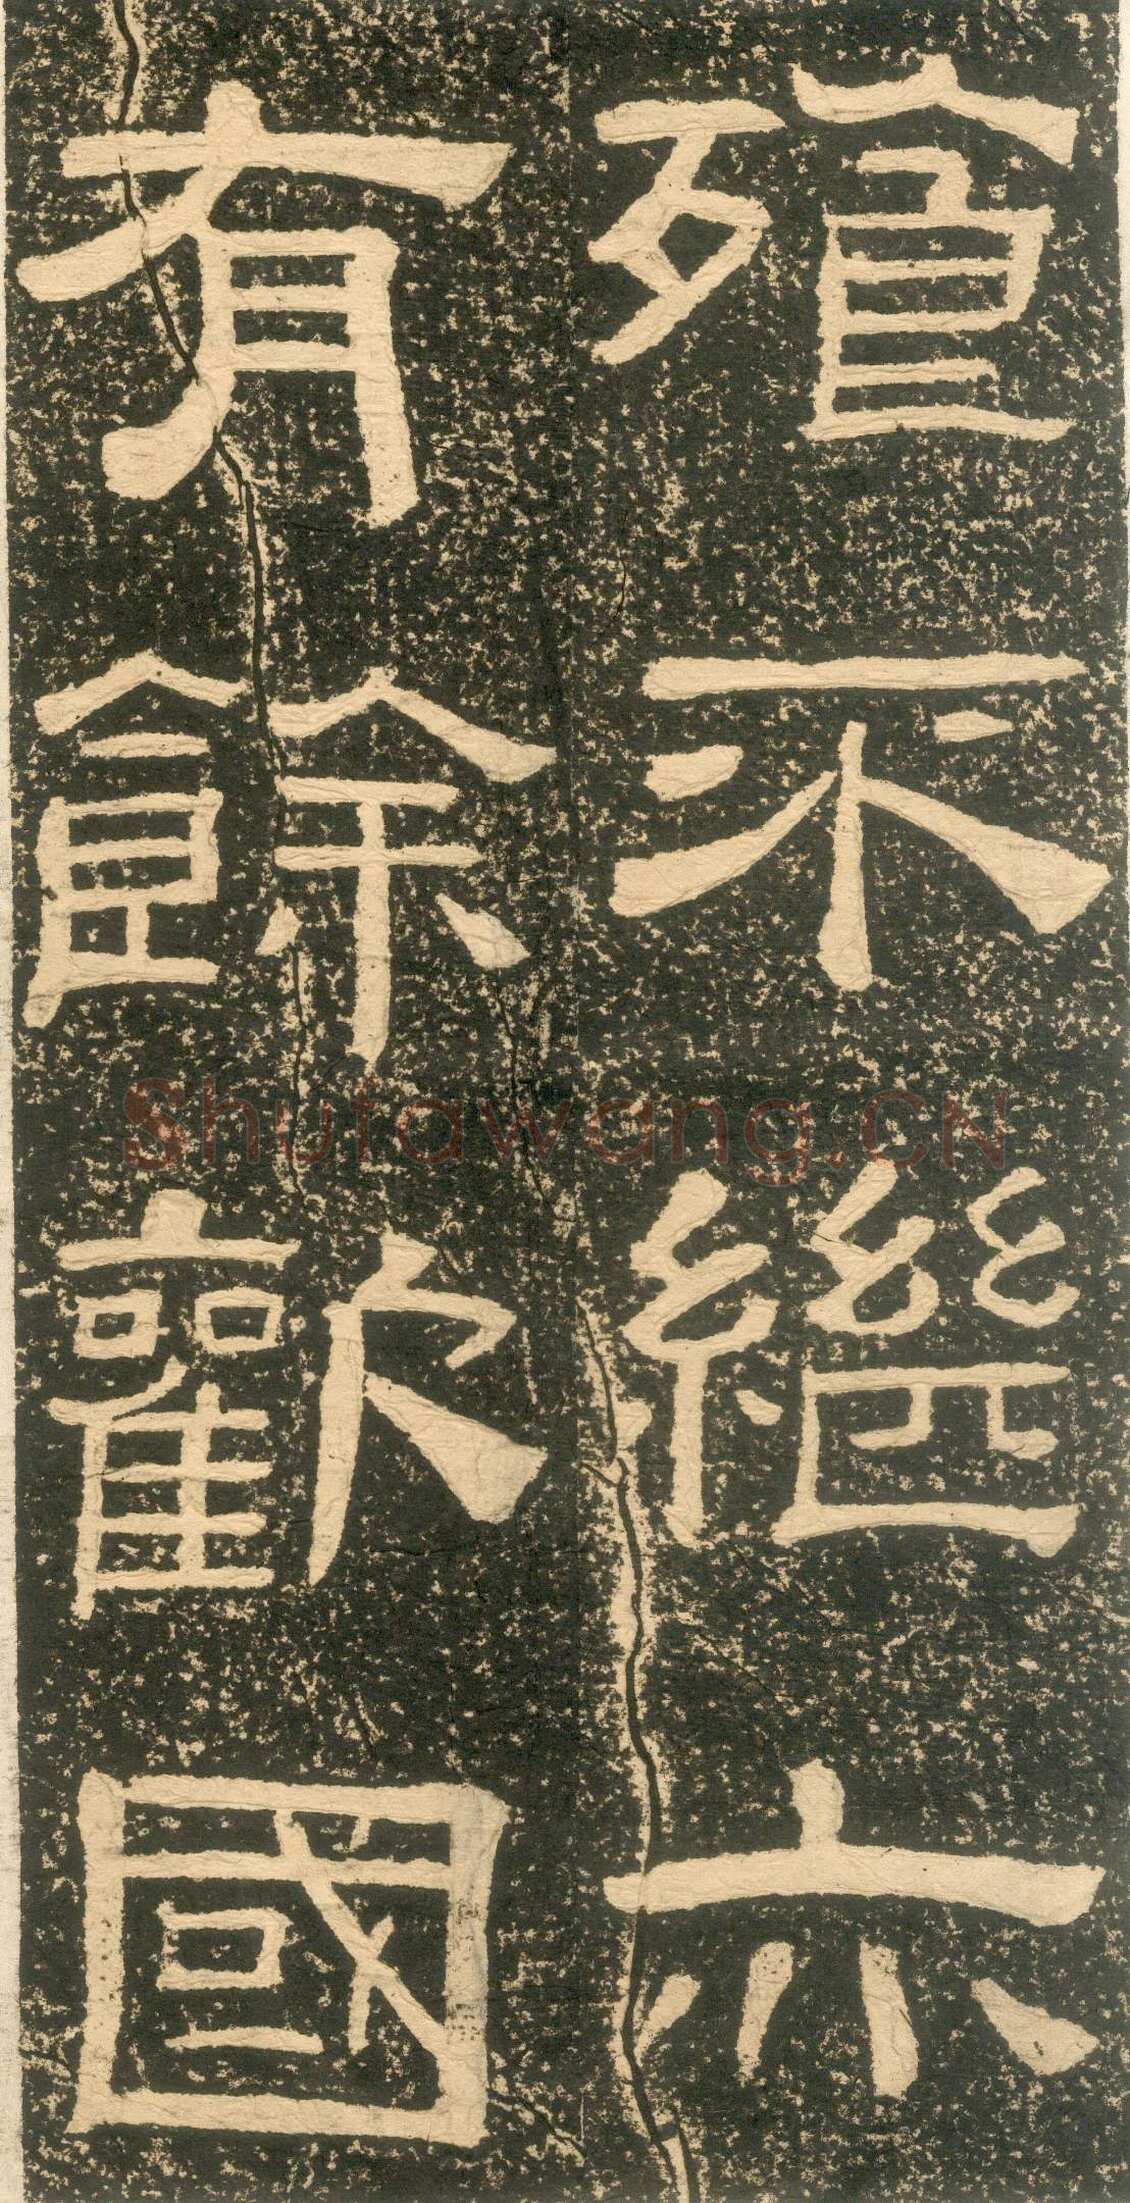 殖不繼亦
有餘歡國
Shufawang.CN